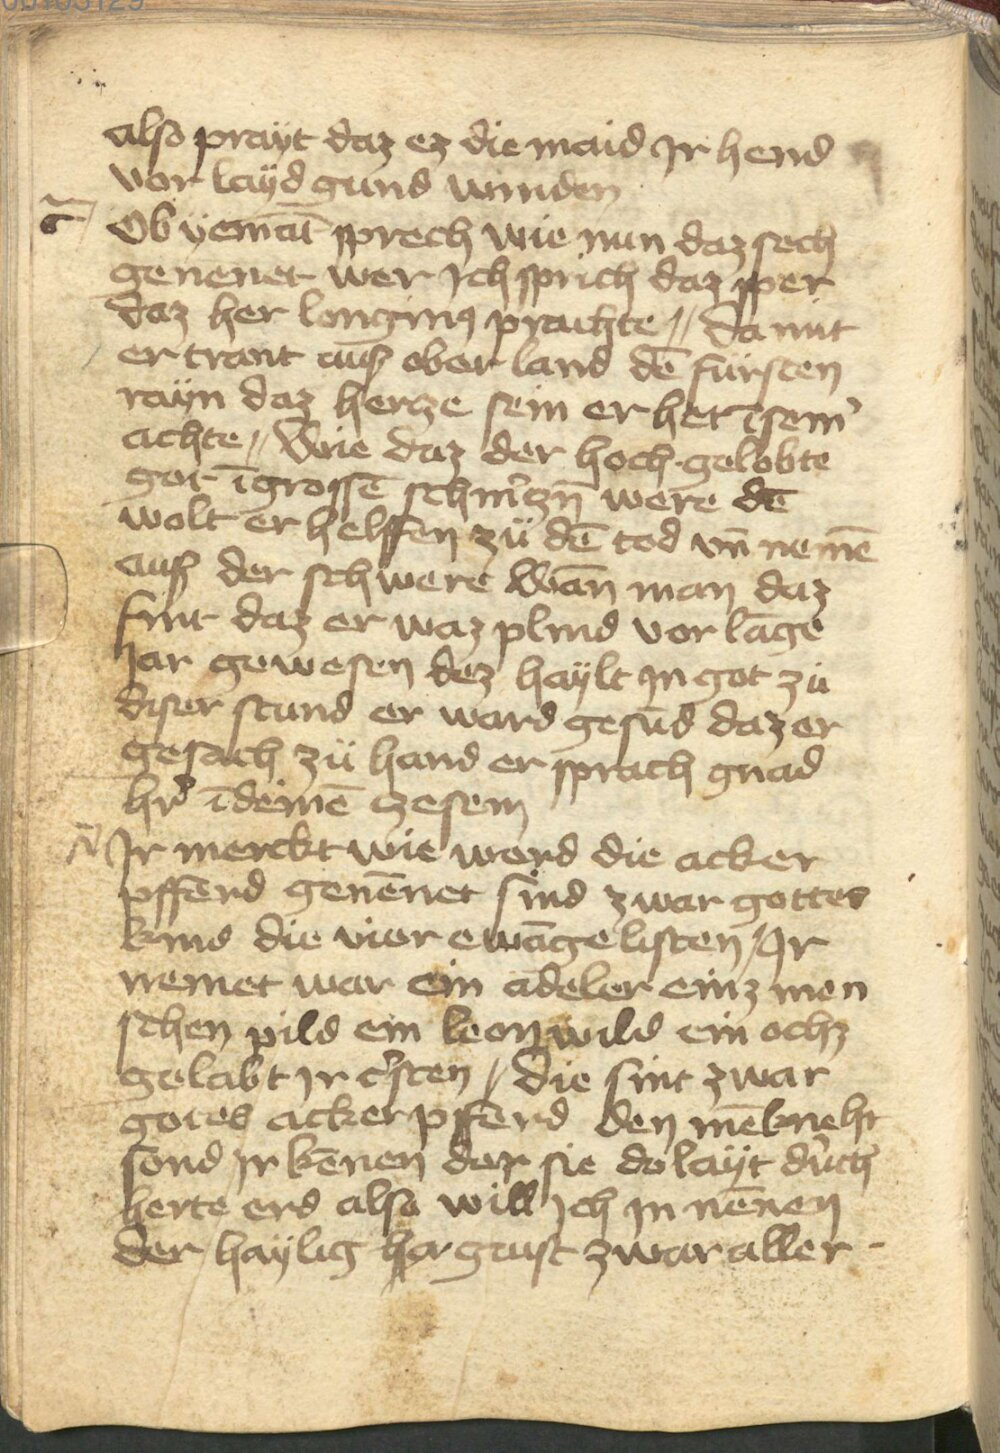 00103129
also prayt daz ez die maid Jr hend
vor layd gund winden
Ob yemāt sprech wie nun daz sech
genenet wer Jch sprich daz sper
daz her longinꝯ prachte // da mit
er trant auß ober land dē fürsten
rayn daz hercze sein er het ī sem̾
achte // Wie daz der hoch gelobte
got ī grossē schm̾czn̄ were dē
wolt er helffen zü dē tod vn̄ nemē
auß der schwere Wān man daz
fint daz er waz plind vor lāge
Jar gewesen dez haylt Jn got zü
diser stund er ward gesūd daz er
gesach zü hand er sprach gnad
hr̄ ī deinē czesem
Jr merckt wie word die acker
pfferd genēnet sind zwar gottes
kind die vier ewāgelisten / Jr
nemet war ein adeler einz men
schen pild ein leon wild ein ochz
gelabt Jr c̾sten // Die sint zwar
gotes acker pfferd den mēkneht
sond Jr kēnen der sie do layt durch
herte erd also will Jch Jn nēnen
der haylig her gaist zwar aller -